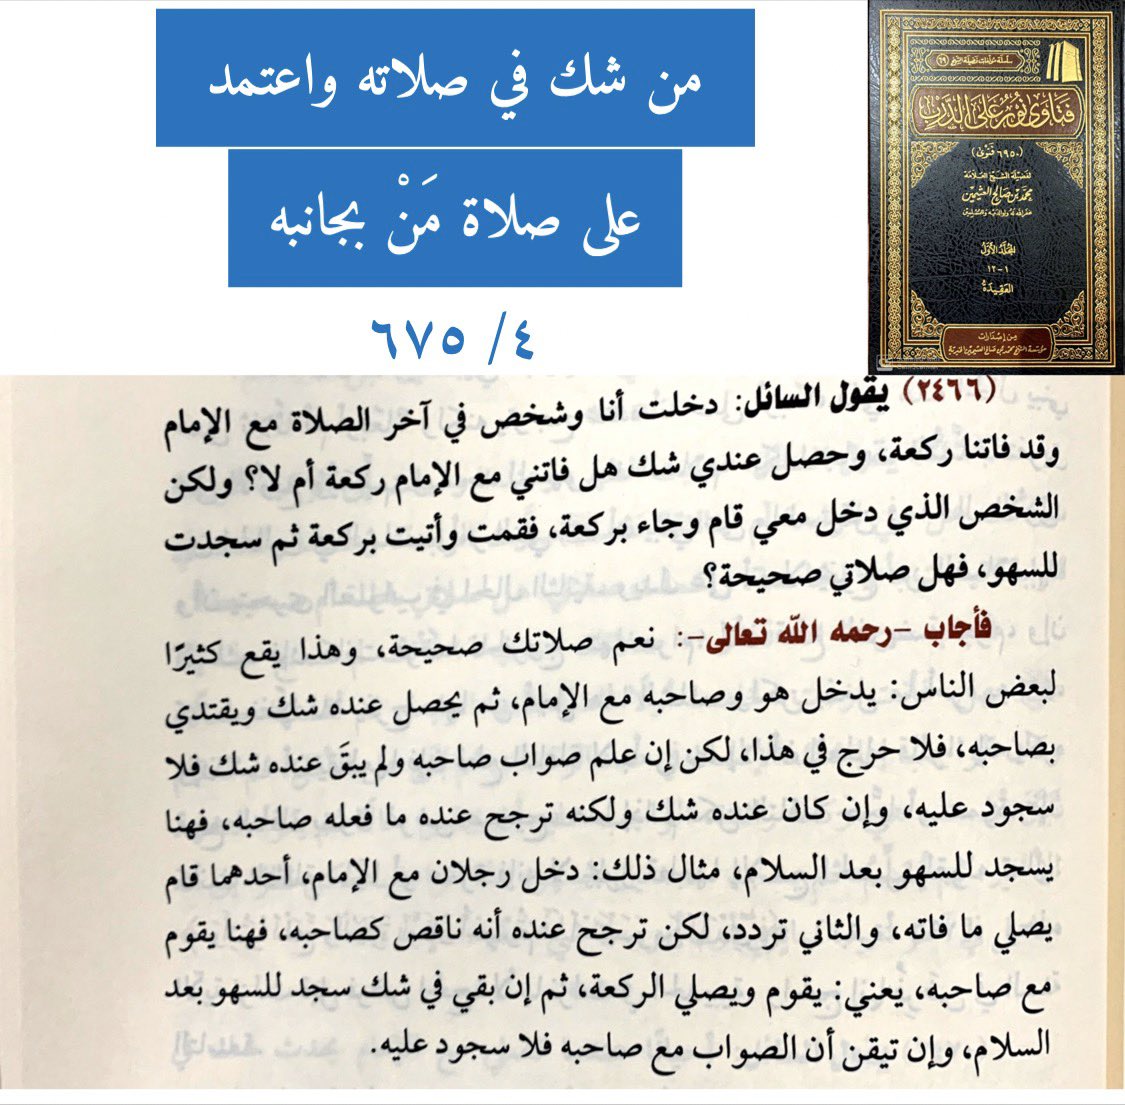 من شك في صلاته واعتمد
على صلاة مَنْ بجانبه
٤/ ٦٧٥
سلسلة مؤلفات فضيلة الشيخ (٦٩)
فتاوى نور على الدرب
(٦٩٥٠ فتوى)
لفضيلة الشيخ العلامة
محمد بن صالح العثيمين
غفر الله له ولوالديه وللمسلمين
المجلد الأول
١-١٢
العقيدة
من إصدارات
مؤسسة الشيخ محمد بن صالح العثيمين الخيرية
(٢٤٦٦) يقول السائل: دخلت أنا وشخص في آخر الصلاة مع الإمام
وقد فاتنا ركعة، وحصل عندي شك هل فاتني مع الإمام ركعة أم لا؟ ولكن
الشخص الذي دخل معي قام وجاء بركعة، فقمت وأتيت بركعة ثم سجدت
للسهو، فهل صلاتي صحيحة؟
فأجاب -رحمه الله تعالى-: نعم صلاتك صحيحة، وهذا يقع كثيرًا
لبعض الناس: يدخل هو وصاحبه مع الإمام، ثم يحصل عنده شك ويقتدي
بصاحبه، فلا حرج في هذا، لكن إن علم صواب صاحبه ولم يبقَ عنده شك فلا
سجود عليه، وإن كان عنده شك ولكنه ترجح عنده ما فعله صاحبه، فهنا
يسجد للسهو بعد السلام، مثال ذلك: دخل رجلان مع الإمام، أحدهما قام
يصلي ما فاته، والثاني تردد، لكن ترجح عنده أنه ناقص كصاحبه، فهنا يقوم
مع صاحبه، يعني: يقوم ويصلي الركعة، ثم إن بقي في شك سجد للسهو بعد
السلام، وإن تيقن أن الصواب مع صاحبه فلا سجود عليه.